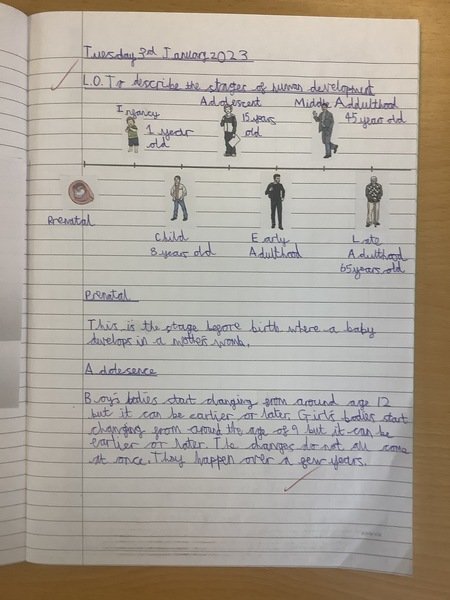 Tuesday 3rd January 2023
L.O. To describe the stages of human development
Infancy
1 year
old
Adolescent
15 years
old
Middle Addulthood
45 year old
Prenatal
Child
8 year old
Early
Adulthood
Late
Adulthood
65 years old
Prenatal
This is the stage before birth where a baby
develops in a mother's womb.
Addolesence
Boy's bodies start changing from around age 12
but it can be earlier or later. Girl's bodies start
changing from around the age of 9 but it can be
earlier or later. The changes do not all come
at once. They happen over a few years.